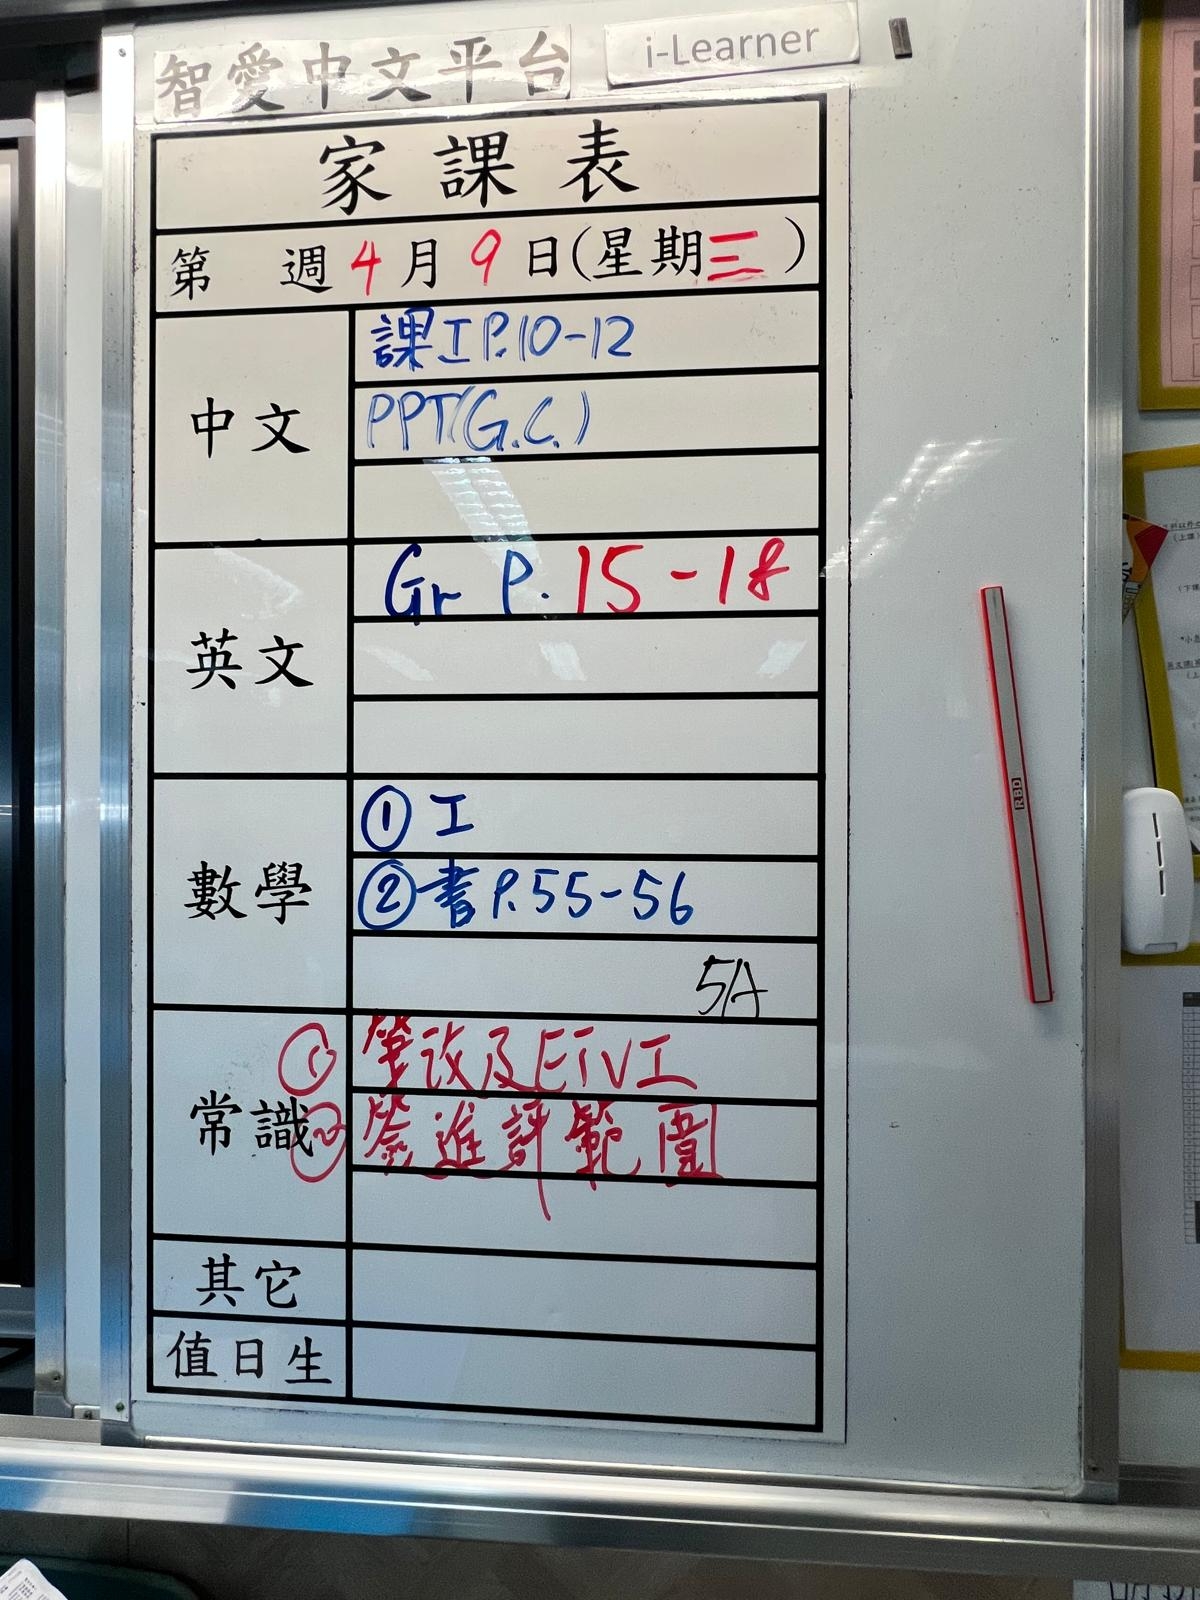 智愛中文平台
i-Learner
家課表
第 週4月9日(星期三)
中文
課工P.10-12
PPT(G.C.)
英文
Gr P. 15-18
數學
①工
②書P.55-56
5A
常識
① 筆改及ETV工
② 簽進評範圍
其它
值日生
RBD